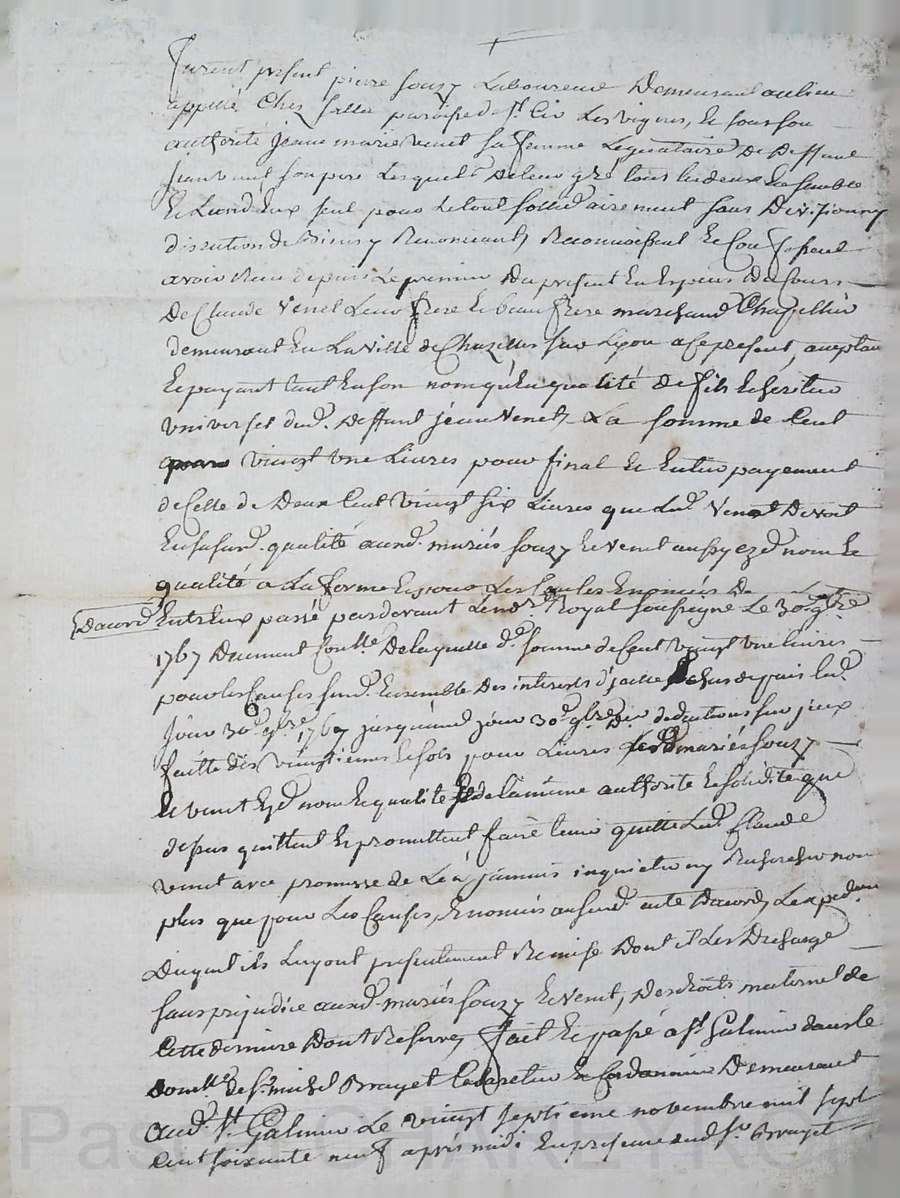 furent présent pierre Souzy Laboureur Demeurant au lieu
appellé Chez Salla paroisse de St. Cir Les vignes, Et sous son
authorité jeanne marie venet sa femme Legataire De Deffunt
jean venet son pere Lesquels De leur gré tous Les deux Ensemble
Et Lun d'Eux seul pour Le tout sollidairement sans Divizion ny
discution de Biens y Renonceants Reconnoissent Et Confessent
avoir Reçu depuis Le premier Du présent En Especes De Cours
De Claude Venet Leur frere Et beau frere marchand Chapellier
demeurant En La ville de Chazelles sur Lyon a Ce present, acceptant
Et payant tant En son nom qu'En qualité de fils Et heritier
vniversel dud. Deffunt jean Venet La somme de Cent
vingt vne Livres pour final Et Entier payement
de Celle de Deux Cent vingt six Livres que Led. Venet Devoit
En sa susd. qualité auxd. mariés Souzy Et Venet aussy ezd. nom Et
qualité a La forme Et pour Les Causes Enoncées De
Dacord Entr'Eux passé pardevant Le nore. Royal soussigné Le 30e. 9bre.
1767 Duement Conllé. De laquelle de. somme de Cent vingt vne Livres
pour les Causes susd. Ensemble Des interests d'jcelle depuis Led.
Jour 30e. 9bre. 1767 jusqu'aud. jour 30e. 9bre. deductions sur jceux
faitte des vingtiemes Et sols pour Livres Lesd. mariés Souzy
Et venet Ezd. nom Et qualité Et de la même authorité Et solidité que
dessus quittent Et promettent faire tenir quitte Led. Claude
venet avec promesse de Ne Le jamais inquietter ny Rechercher non
plus que pour Les Causes Enoncées au susd. acte Dacord, L'expedon.
Duquel ils Luy ont presentement Remise Dont il Les Decharge
sans prejudice auxd. mariés Souzy Et Venet, Des droits maternel de
Cette derniere Dont Reserve, fait Et passé a St. Galmier dans le
domlle. de Sr. michel Brayet Cabaretier Et Cordonnier Demeurant
aud. St. Galmier Le vingt septieme novembre mil sept
Cent soixante neuf après midi En presence dud. Sr. Brayet
Pas CHAREYRON